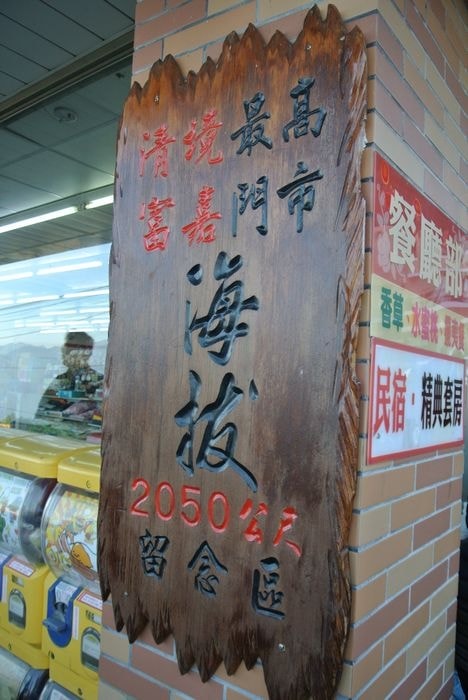 清境最高
富嘉門市
海拔
2050公尺
留念區
餐廳部
香草·水蜜桃
民宿·精典套房